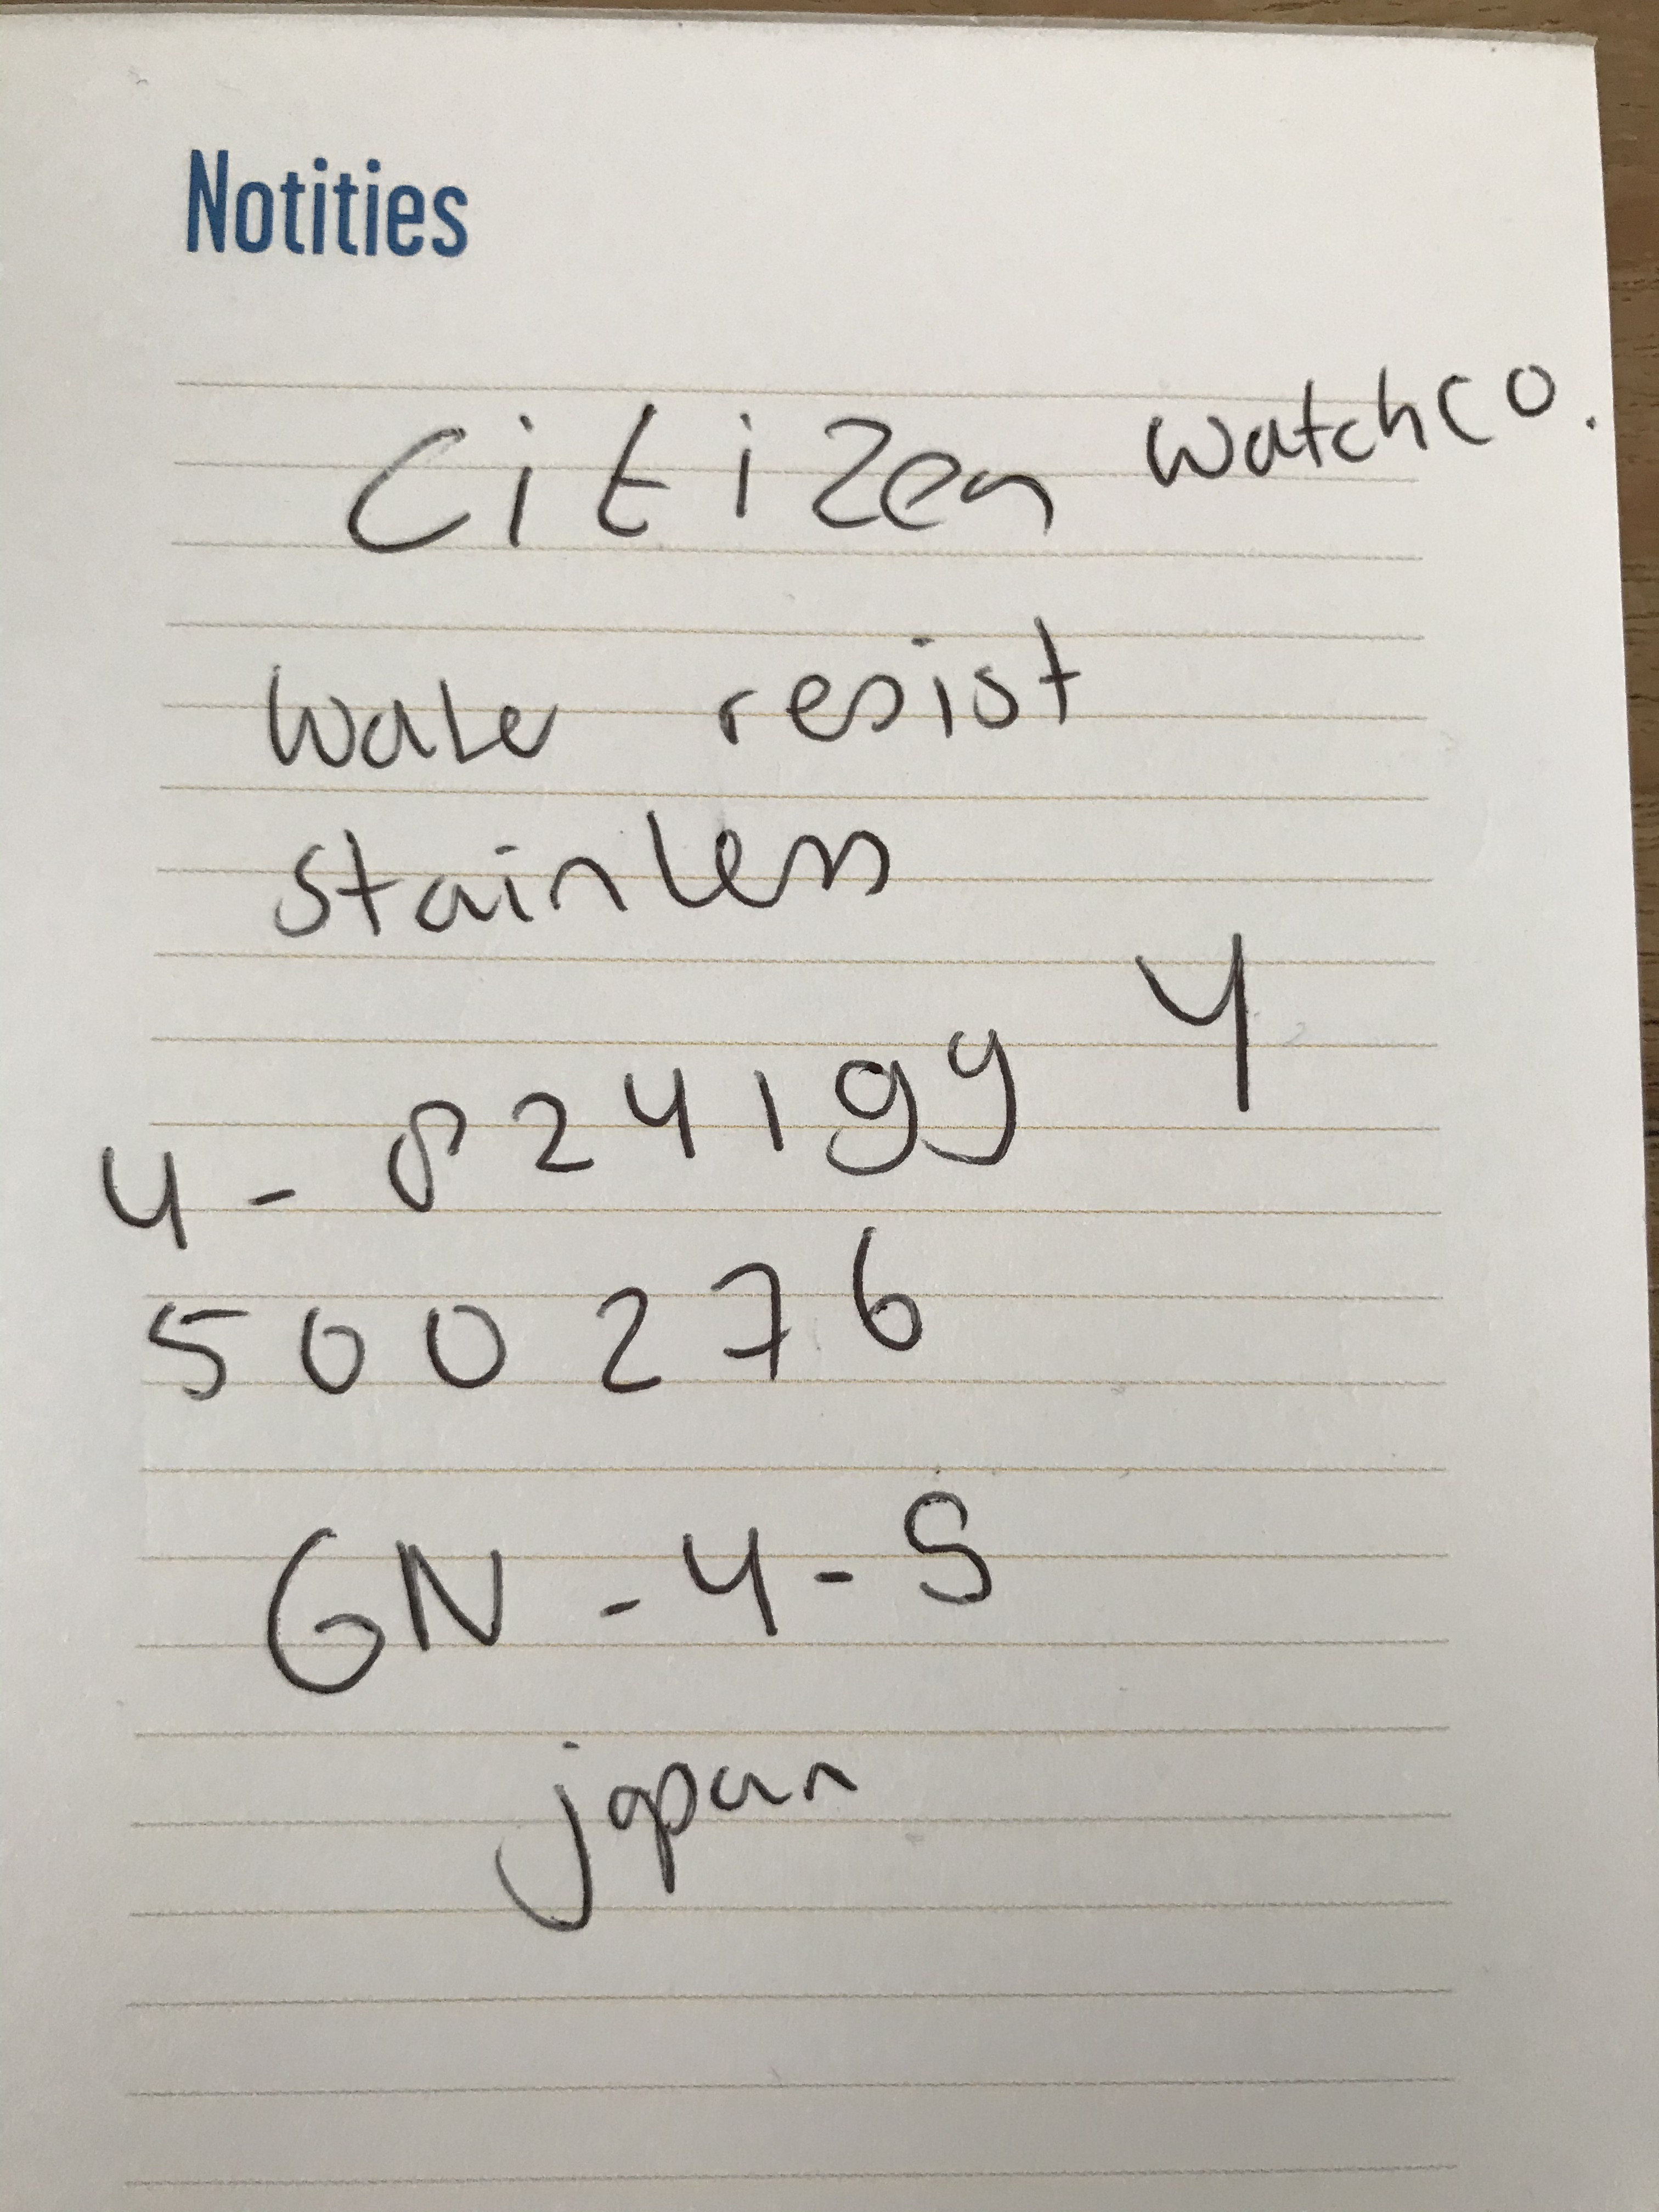 Notities
Citizen watch co.
water resist
stainless
4-824199 Y
500276
GN-4-S
japan